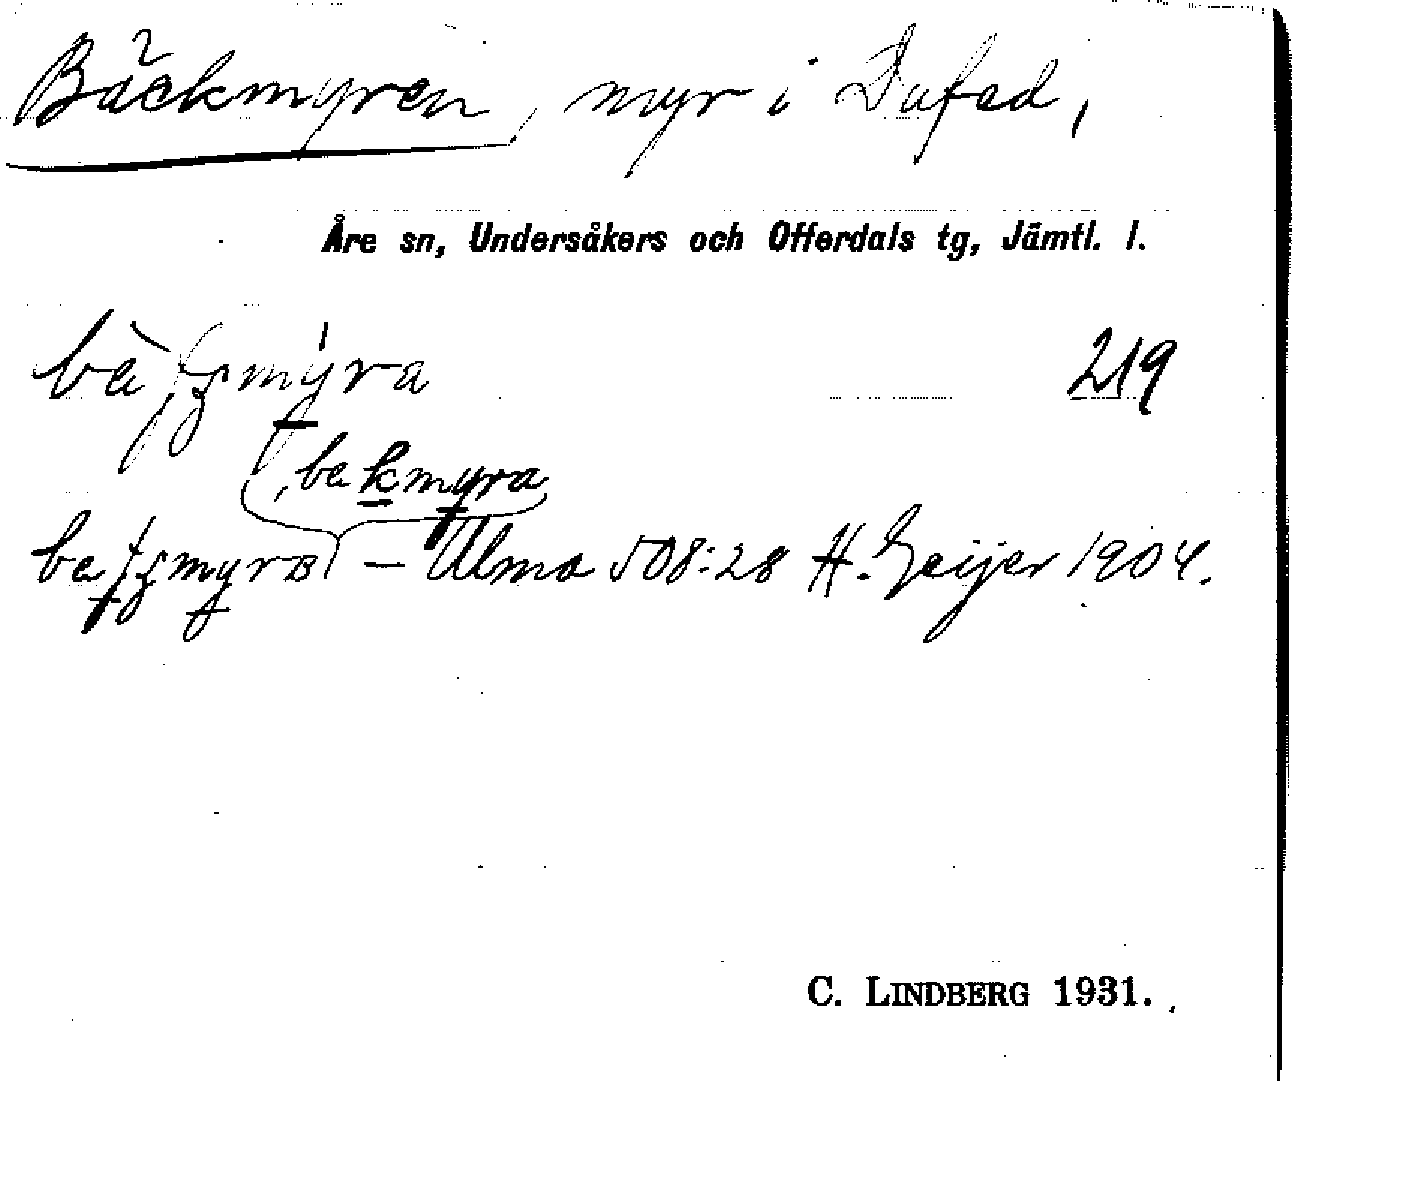 Bäckmyren, myr i Dufed,
Åre sn, Undersåkers och Offerdals tg, Jämtl. l.
219
bekmyra
– Ulma 508:28 H. Geijer 1904.
C. LINDBERG 1931.